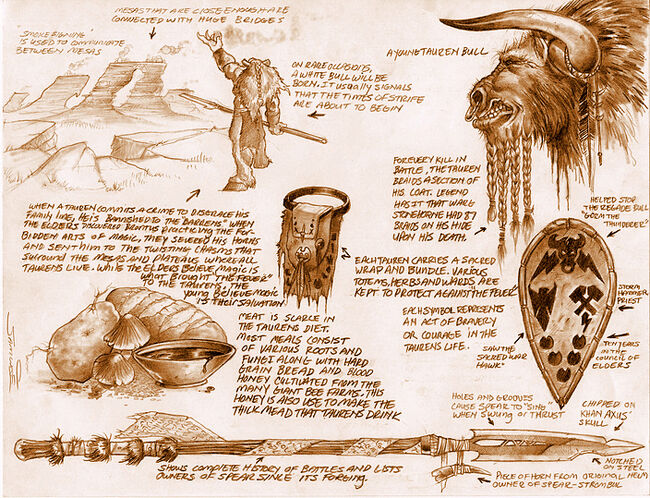 MESAS THAT ARE CLOSE ENOUGH ARE
CONNECTED WITH HUGE BRIDGES
"SMOKE SIGNING"
IS USED TO COMMUNICATE
BETWEEN MESAS
ON RARE OCCASIONS,
A WHITE BULL WILL BE
BORN. IT USUALLY SIGNALS
THAT THE TIMES OF STRIFE
ARE ABOUT TO BEGIN
A YOUNG TAUREN BULL
FOR EVERY KILL IN
BATTLE, THE TAUREN
BRAIDS A SECTION OF
HIS COAT. LEGEND
HAS IT THAT WARG
STONEHORNE HAD 87
BRAIDS ON HIS HIDE
UPON HIS DEATH.
WHEN A TAUREN COMMITS A CRIME TO DISGRACE HIS
FAMILY LINE, HE IS BANISHED TO THE BARRENS. WHEN
THE ELDERS DISCOVERED BRUTUS PRACTICING THE FOR
BIDDEN ARTS OF MAGIC, THEY SEVERED HIS HORNS
AND SENT HIM TO THE TWISTING CHASMS THAT
SURROUND THE MESAS AND PLATEAUS WHERE ALL
TAURENS LIVE. WHILE THE ELDERS BELIEVE MAGIC IS
WHAT BROUGHT THE "FEUER"
TO THE TAURENS, THE
YOUNG BELIEVE MAGIC
IS THEIR SALVATION
EACH TAUREN CARRIES A SACRED
WRAP AND BUNDLE. VARIOUS
TOTEMS, HERBS AND WARDS ARE
KEPT TO PROTECT AGAINST THE "FEUER"
HELPED STOP
THE REGADE BULL
"GORM THE
THUNDERER"
STORM
HAMMER
PRIEST
TEN YEARS
IN THE
COUNCIL OF
ELDERS
EACH SYMBOL REPRESENTS
AN ACT OF BRAVERY
OR COURAGE IN THE
TAURENS LIFE.
SAW THE
SACRED WAR
HAWK
MEAT IS SCARCE IN
THE TAURENS DIET.
MOST MEALS CONSIST
OF VARIOUS ROOTS AND
FUNGI ALONG WITH HARD
GRAIN BREAD AND BLOOD
HONEY CULTIVATED FROM THE
MANY GIANT BEE FARMS. THIS
HONEY IS ALSO USE TO MAKE THE
THICK MEAD THAT TAURENS DRINK
HOLES AND GROOVES
CAUSE SPEAR TO "SING"
WHEN SWUNG OR THRUST
CHIPPED ON
KHAN AXIIS'
SKULL
SHOWS COMPLETE HISTORY OF BATTLES AND LISTS
OWNERS OF SPEAR SINCE ITS FORGING.
NOTCHED
ON STEEL
HELM
PIECE OF HORN FROM ORIGINAL
OWNER OF SPEAR-